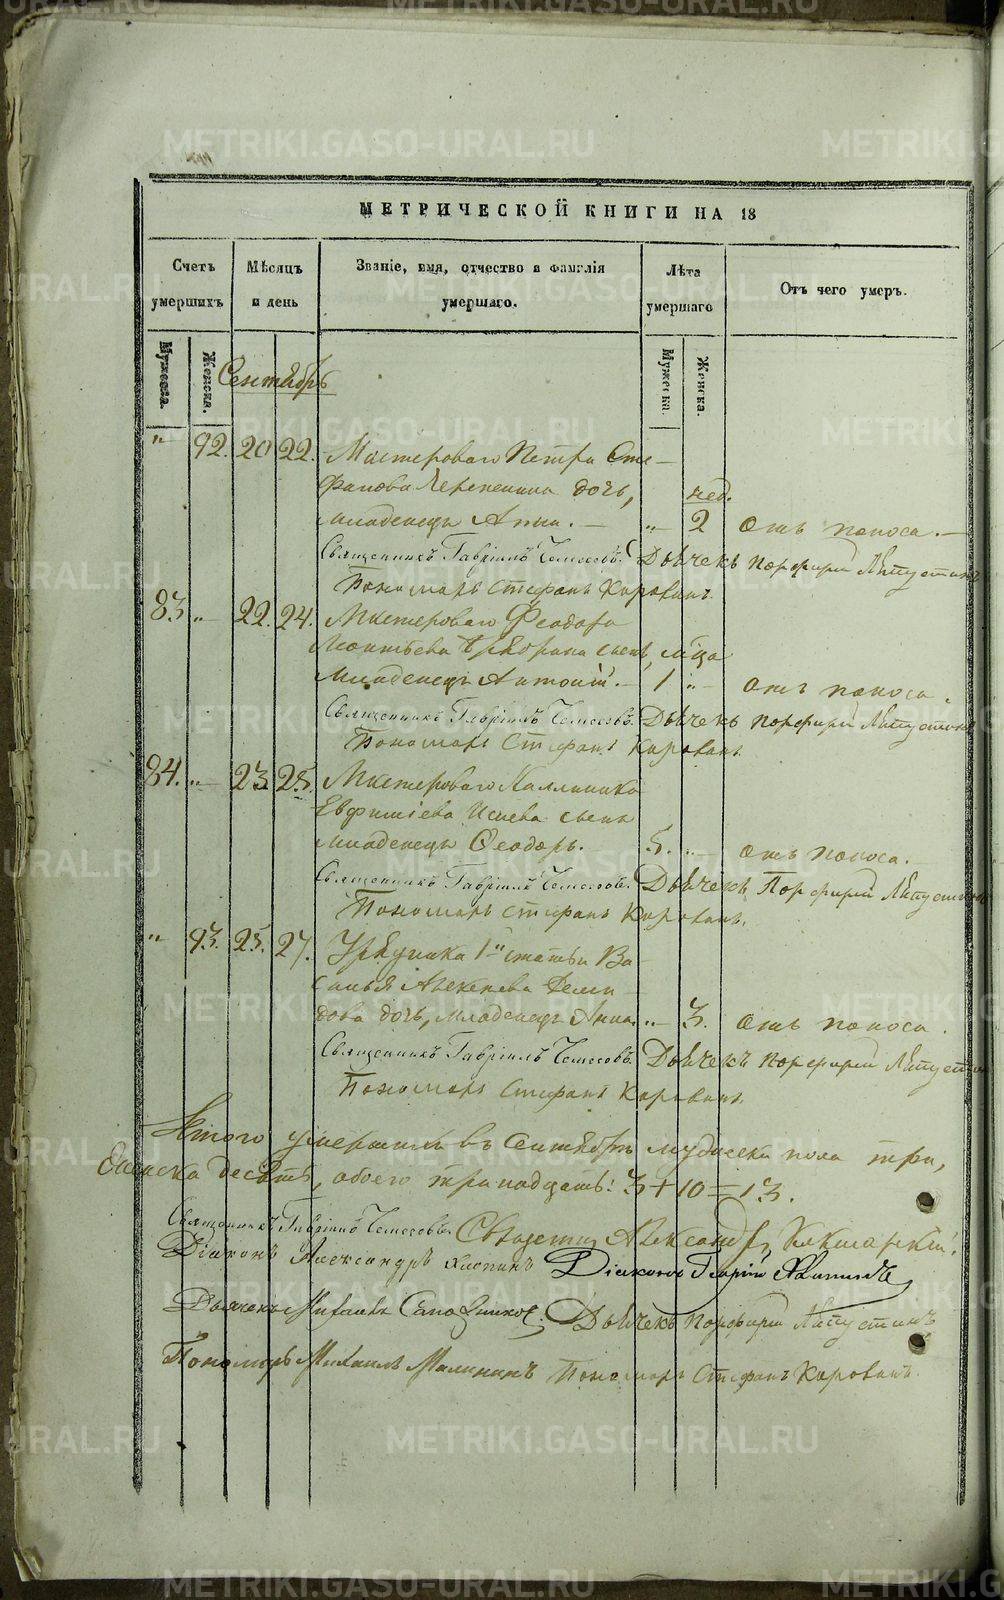 METRIKI.GASO-URAL.RU
МЕТРИЧЕСКОЙ КНИГИ НА 18
Счетъ умершихъ
Мѣсяцъ и день
Званіе, имя, отчество и фамилія умершаго.
Лѣта умершаго
Отъ чего умеръ.
Мужеска.
Женска.
Мужеска.
Женска.
Сентябрь
" 92. 20 22. Мастероваго Петра Сте-
фанова дочь, нед.
младенецъ Анна. " 2 отъ поноса.
Священникъ Гавріилъ Дьячекъ Порфирий
Пономарь Стефанъ Короваевъ
83. " 22. 24. Мастероваго Феодора
Леонтьева сынъ, м-ца
младенецъ Антоній. 1 " отъ поноса.
Священникъ Гавріилъ Дьячекъ Порфирий
Пономарь Стефанъ
84. " 23. 25. Мастероваго Каллиника
Евфиміева Исаева сынъ
младенецъ Феодоръ. 5. " отъ поноса.
Священникъ Гавріилъ Дьячекъ Порфирий
Пономарь Стефанъ
" 93. 25. 27. Урядника 1й статьи Ва-
силья Деми-
дова дочь, младенецъ Анна. " 3. отъ поноса.
Священникъ Гавріилъ Дьячекъ Порфирий
Пономарь Стефанъ
Итого умершихъ въ Сентябрѣ мужеска пола три,
женска десять, обоего тринадцать: 3 + 10 = 13.
Священникъ Гавріилъ Александръ
Діаконъ Александръ Діаконъ Георгій
Дьячекъ Михаилъ Сапожниковъ. Дьячекъ Порфирий
Пономарь Михаилъ Малининъ Пономарь Стефанъ